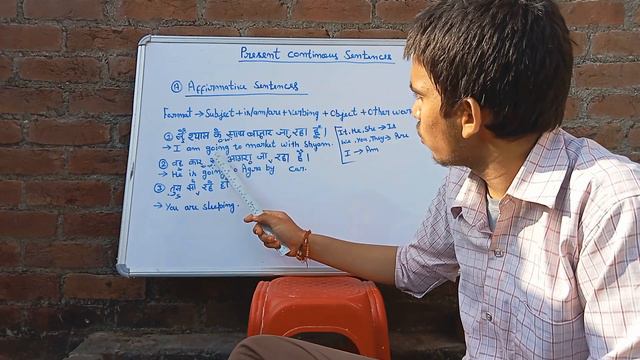 Present continous Sentences
Ⓐ Affirmative Sentences
Format → Subject + is/am/are + verbing + object + other wor
① मैं श्याम के साथ बाजार जा रहा हूँ।
→ I am going to market with Shyam.
② वह कार से आगरा जा रहा है।
→ He is going to Agra by car.
③ तुम सो रहे हो
→ You are sleeping.
It, He, She → Is
We, You, They → Are
I → Am